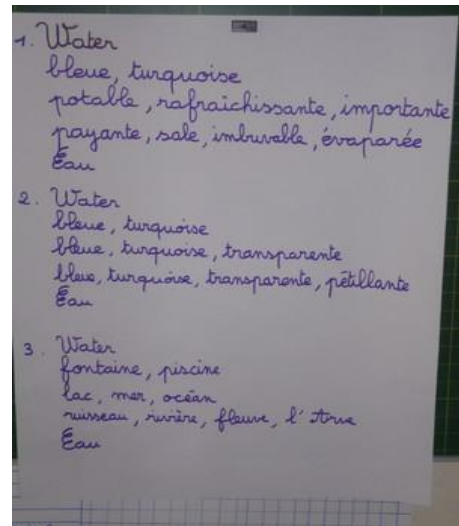 1. Water
bleue, turquoise
potable, rafraîchissante, importante
payante, sale, imbuvable, évaparée
Eau
2. Water
bleue, turquoise
bleue, turquoise, transparente
bleue, turquoise, transparente, pétillante
Eau
3. Water
fontaine, piscine
lac, mer, océan
ruisseau, rivière, fleuve, l'Arve
Eau